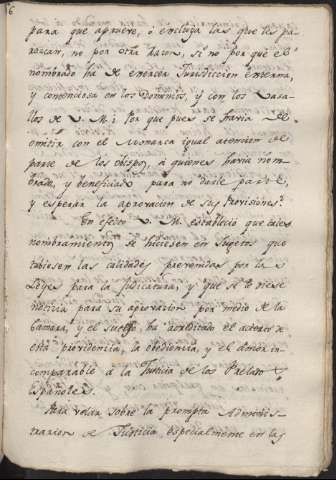 6
para que apruebe, ó excluya las que les pa-
rezcan, no por otra razon, si no por que el
nombrado ha de exercer Jurisdiccion externa,
y contenciosa en los Dominios, y con los Vasa-
llos de V. M.; Por que pues se havia de
omitir con el Monarca igual atencion de
parte de los obispos, á quienes havia nom-
brado, y beneficiado para no darle parte,
y esperar la aprovacion de sus Provisiones?
En efecto V. M. estableció que tales
nombramientos se hiciesen en Sugetos que
tubiesen las calidades prevenidas por las
Leyes para la Judicatura, y que se le diese
noticia para su aprovacion por medio de la
Camara, y el suceso ha acreditado el acierto de
esta providencia, la obediencia, y el amor in-
comparable á la Justicia de los Prelados
Españoles.
Para velar sobre la prompta Adminis-
tracion de Justicia, especialmente en las